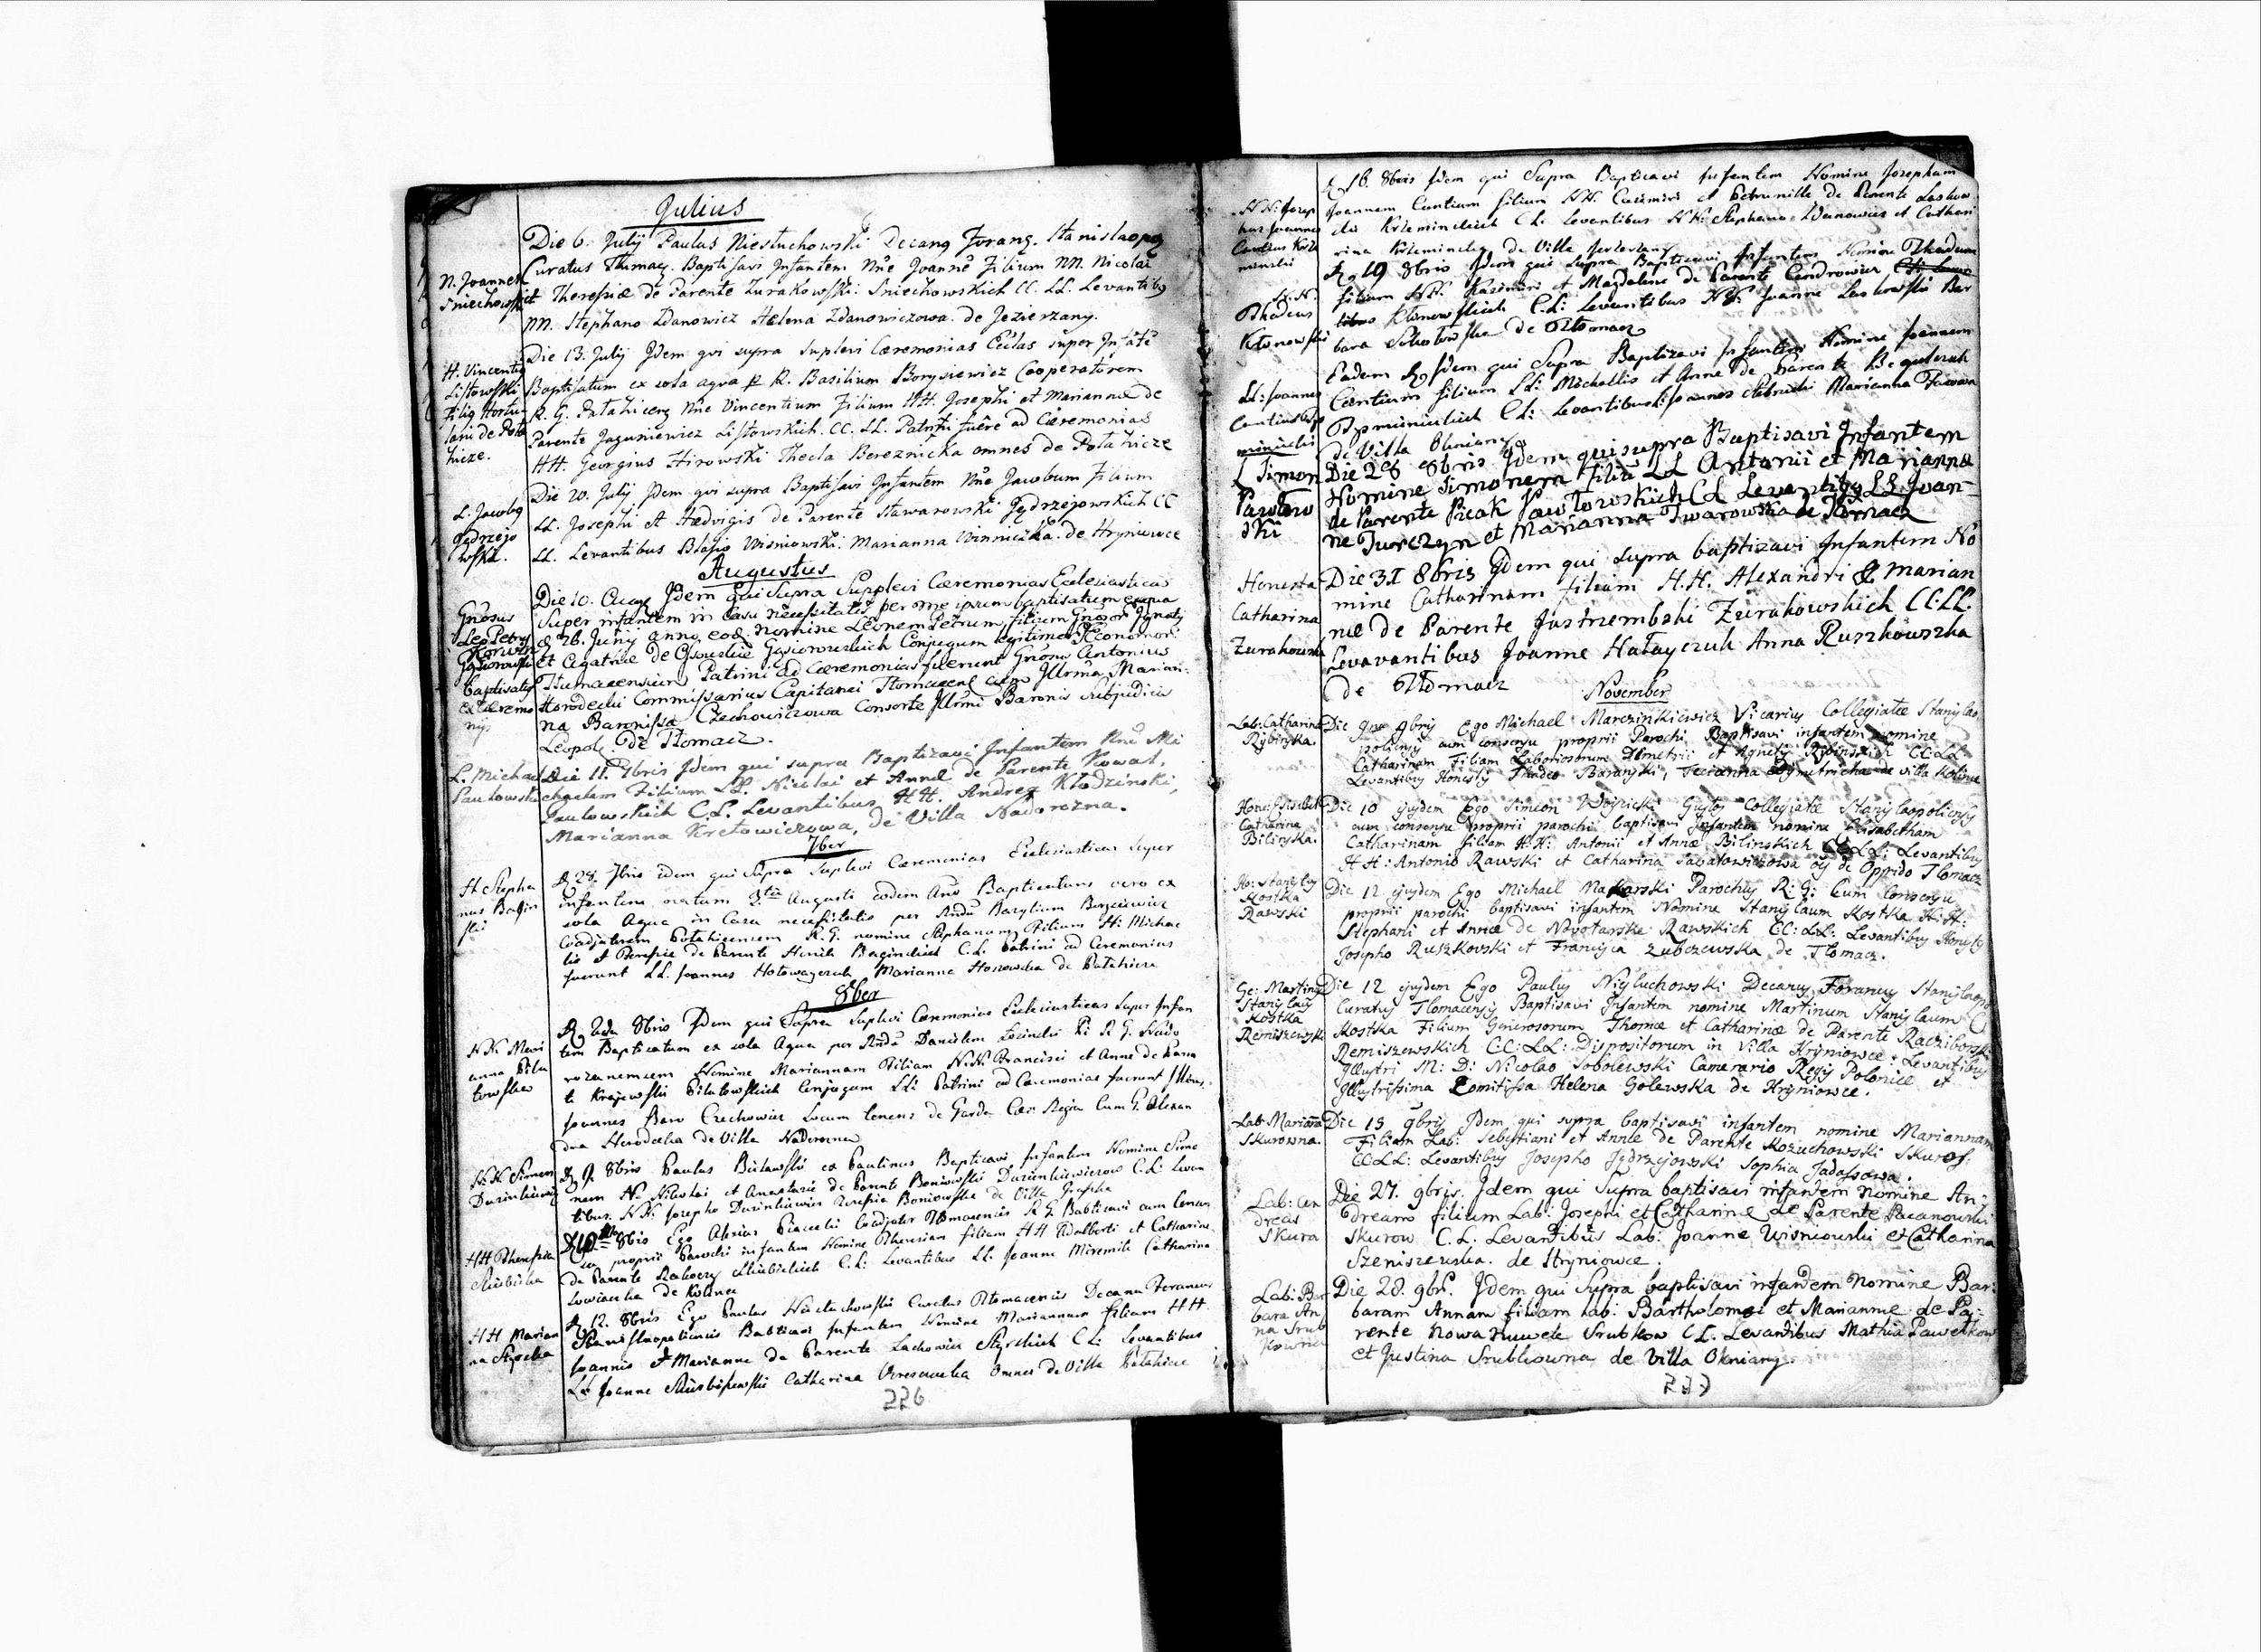 Julius
N. Joannes
Sniechowski
Die 6. Julij Paulus Niestuchowski Decang Forang. Stanislaopog
Curatus Tlumac. Baptisavi Infantem Nne Joannē Filium NN. Nicolai
et Theresiæ de Parente Zurakowski. Sniechowskich CC. LL. Levantibg
NN. Stephano Zdanowicz Helena Zdanowiczowa. de Jezierzany.
H. Vincentig
Listowski
Filig Hortu-
lani de Pota
hicze.
Die 13. Julij Idem qvi supra suplevi Cæremonias Ecclas super Infātē
Baptisatum ex sola aqva p R. Basilium Borysiewicz Cooperatorem
R. G. Patahicens Nne Vincentium Filium HH. Josephi et Mariannæ de
Parente Jaguniewicz Listowskich. CC. LL. Patrini fuêre ad Cæremonias
HH. Georgius Hirowski Thecla Bereznicka omnes de Potahicze
L. Jacobg
Jędrzejo
wski.
Die 20. Julij Idem qvi supra Baptisavi Infantem Nne Jacobum Filium
LL. Josephi et Hedvigis de Parente Stawarowski Jędrzejowskich CC
LL. Levantibus Blasio Wisniowski. Marianna Winniczka. de Hryniowce
Augustus
Gnosus
Leo Petrus
Korwin
Gąsiorowski
baptisatus
et Ceremo
nijs
Die 10. Aug. Idem qui Supra Supplevi Cæremonias Ecclesiasticas
Super infantem in casu necessitatis per me ipsum baptisatum ex aqua
d. 26. Junij anno eod. nomine Leonem Petrum, filium Gnosor Ignatij
et Agathæ de Gąsiorowskich Conjugum legitimor Œconomor
Tlumacensium Patrini ad Cæremonias fuerunt Gnosus Antonius
Horodecki Commissarius Capitanei Tlomacens cum Illrma Marian-
na Baronissa Czechowiczowa Consorte Illrmi Baronis Subjudicis
Leopol. de Tlomacz.
L. Michael
Pawlowski
Die 11. 7bris Idem qui supra Baptizavi Infantem Nnē Mi
chaelem Filium LL. Nicolai et Annæ de Parente Kowal,
Pawlowskich C.L. Levantibus HH. Andrea Kłodzinski,
Marianna Kretowiczowa, de Villa Nadorozna.
7ber
H. Stepha
nus Bagin
ski
D. 28. 7bris idem qui Supra Suplevi Cæremonias Ecclesiasticas Super
infantem natum 3tia Augusti eodem Anō Baptisatum vero ex
sola Aqua in Casu necessitatis per Rndū Basylium Borysiewicz
Coadjutorem Potahicensem R. G. nomine Stephanum Filium H: Michae
lis et Theresiæ de Parente Baginskich C.L. Patrini ad Ceremonias
fuerunt LL. Joannes Hotowayczuk Marianna Horowska de Potahicze
8ber
N.N. Mari
anna Pilu
towska
D. 2da 8bris Idem qui Supra Suplevi Ceremonias Ecclesiasticas Super Infan
tem Baptisatum ex sola Aqua per Rndū Danielem R. G. Nado
roznensem Nomine Mariannam Filiam N.N. Francisci et Annæ de Paren
te Krajewski Pilutowskich Conjugum LL: Patrini ad Ceremonias fuerunt Illmus
Joannes Baro Czechowicz Locum tenens de Garda Cæs. Regia Cum G. Alexan
dra Horodecka de Villa Nadorozna
N.N. Simeon
D. 9. 8bris Paulus Bielawski ex Paulinus Baptisavi Infantem Nomine Sime
onem NN. Nikolai et Anastasiæ de Parente Boniowski C.L: Levan
tibus. N.N: Josepho Theresia Boniowska de Villa
HH Theresia
D. 10ma 8bris Ego Alexius Coadjutor Tlomacensis R G. Babtisavi cum Consen
su proprii Parochi infantem Nomine Theresiam filiam HH Adalberti et Catharinæ
de Parente C.L: Levantibus LL. Joanne Catharina
de Kolince
HH. Marian
na
D. 12. 8bris Ego Paulus Niestuchowski Curatus Tlomacensis Decanus Foraneus
Stanislaopoliensis Babtisavi Infantem Nomine Mariannam filiam HH.
Joannis et Mariannæ de Parente Lachowicz C L: Levantibus
LL Joanne Catharina Omnes de Villa Potahicze
226
N N: Josep
hus Joannes
Cantius Krze
minski
D. 16. 8bris Idem qui Supra Baptisavi Infantem Nomine Josephum
Joannem Cantium filium N.N. Casimiri et Petronille de Parente Laskow
ski Krzeminskich C L: Levantibus N.N: Stephano Zdanowicz et Cathari
rina Krzeminska de Villa Jezierzany
N.N.
Thadeus
Klonowski
D. 19 8bris Idem qui Supra Baptisavi Infantem Nomine Thadeum
filium N.N. Kazimiri et Magdalenæ de Parente Cendrowicz
Klonowskich C.L: Levantibus N.N: Joanne Laskowski Bar
bara de Tlomacz
LL: Joannes
Cantius
Eadem D. Idem qui Supra Baptizavi Infantem Nomine Joannem
Cantium filium LL: Michaelis et Annæ de Parente
C L: Levantibus LL: Joannes Marianna
de Villa Okniany
L Simon
Pawłow
ski
Die 28 8bris Idem qui supra Baptisavi Infantem
Nomine Simonem Filiū LL Antonii et Mariannæ
de Parente Pięak Pawłowskich CL Levantibg LL Joan-
ne Jurczyn et Marianna Twarowska de Tłomacz
Honesta
Catharina
Zurakowska
Die 31 8bris Idem qui supra baptizavi Infantem No
mine Catharinam filiam H.H. Alexandri & Marian
næ de Parente Jastrzembski Zurakowskich CC.LL.
Levavantibus Joanne Hałayczuk Anna Ruszkowszka
de Tłomacz
November
Lab: Catharina
Rybinska.
Die 9na 9bris Ego Michael Marczinkiewicz Vicarius Collegiatæ Stanislao
poliensis cum consensu proprii Parochi Baptisavi infantem nomine
Catharinam Filiam Laboriosorum Dimetrii et Agnetis Rybinskich CC:LL:
Levantibg Honestis Thadeo Baranski, Tecianna Dymetricha de villa Kolince
Honesta Elisabeth
Catharina
Bilinska.
Die 10 ejusdem Ego Simeon Woyzicki Custos Collegiatæ Stanislaopoliensis
cum consensu proprii parochi baptisavi Infantem nomine Elisabetham
Catharinam filiam H:H: Antonii et Annæ Bilinskich CC:LL: Levantibg
H:H: Antonio Rawski et Catharina Sabatowiczowa ojs de Oppido Tlomacz
Ho: Stanislaus
Kostka
Rawski
Die 12 ejusdem Ego Michael Parochus R: G: Cum Consensu
proprii parochi baptisavi infantem Nomine Stanislaum Kostka H:H:
Stephani et Annæ de Novotarski Rawskich CC:LL: Levantibg Honestis
Josepho Ruszkovski et Francisca Zubczewska de Tlomacz.
Ge: Martinus
Stanislaus
Kostka
Remiszewski
Die 12 ejusdem Ego Paulus Niestuchowski Decanus Foraneus Stanislaopo
Curatus Tlomacensis Baptisavi Infantem nomine Martinum Stanislaum
Kostka Filium Generosorum Thomæ et Catharinæ de Parente Raciborski
Remiszewskich CC:LL: Dispositorum in Villa Hryniowce: Levantibus
Illustri M: D: Nicolao Sobolewski Camerario Regis Poloniæ et
Illustrissima Comitissa Helena Golewska de Hryniowce.
Lab: Marianna
Skurowna.
Die 13 9bris Idem qui supra baptisavi infantem nomine Mariannam
Filiam Lab: Sebestiani et Annæ de Parente Kozuchowski Skurof:
CC:LL: Levantibus Josepho Jędrzejowski Sophia Jadassowa.
Lab: An
dreas
Skura
Die 27. 9bris. Idem qui Supra baptisavi infantem nomine An-
dream filium Lab: Josephi et Catharinæ de Parente Pacanowski
Skurow C. L. Levantibus Lab: Joanne Wisniowski et Catharina
Szeniszewska. de Hryniowce.
Lab: Bar
bara An
na Srub
kowna
Die 28. 9br. Idem qui Supra baptisavi infantem nomine Bar-
baram Annam filiam Lab: Bartholomæi et Mariannæ de Pa-
rente Srubkow C L. Levantibus Mathia Pawelkow
et Justina Srubkowna de Villa Okniany.
227